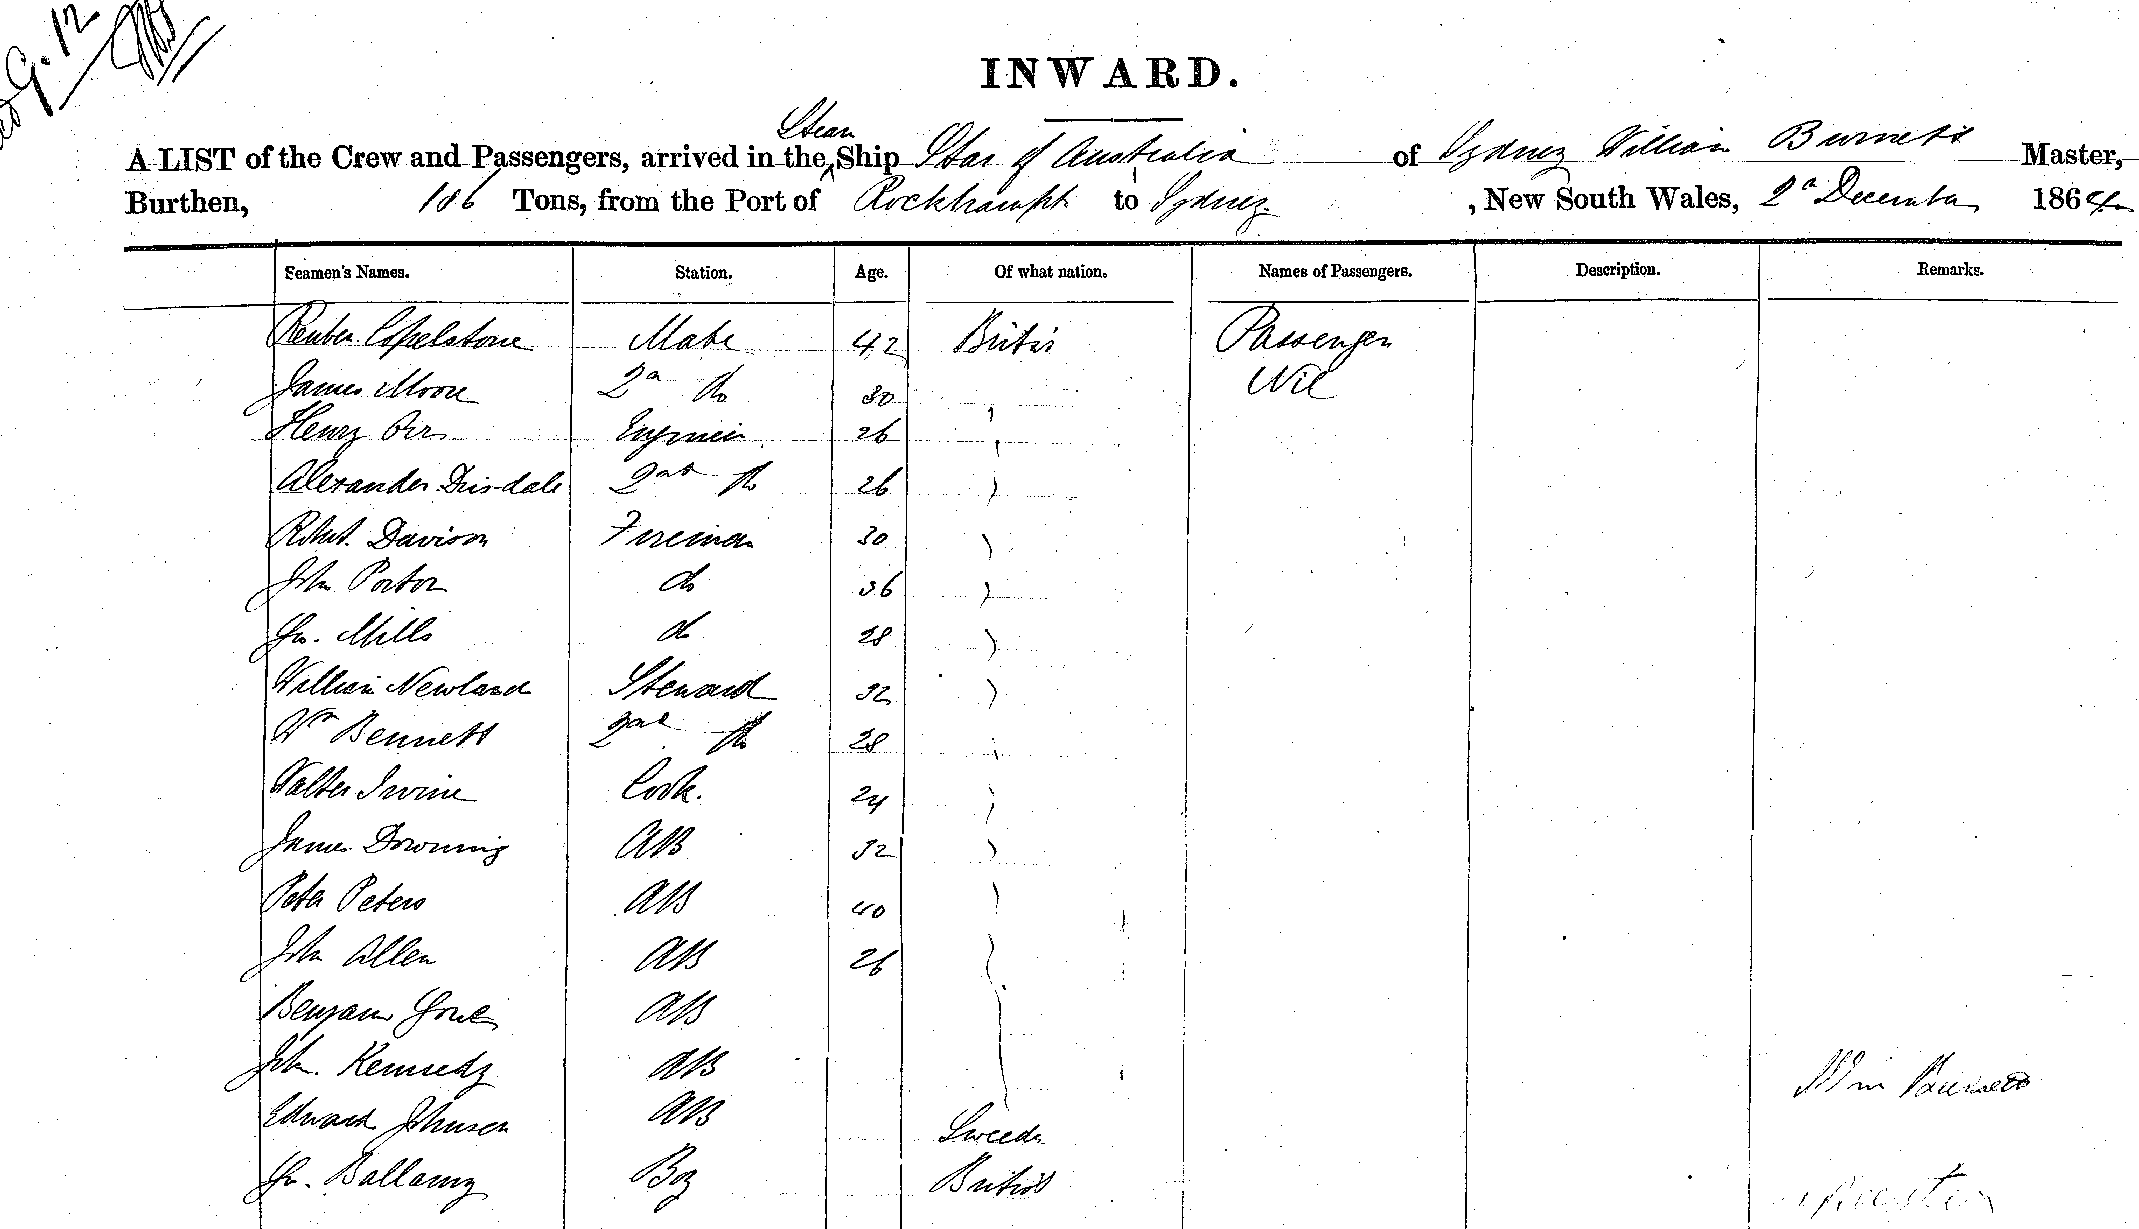 G. 12
INWARD.
Steam
A LIST of the Crew and Passengers, arrived in the Ship Star of Australia of Sydney William Burnett Master,
Burthen, 106 Tons, from the Port of Rockhampt to Sydney , New South Wales, 2d December 1864
Seamen's Names. Station. Age. Of what nation. Names of Passengers. Description. Remarks.
Reuben Copelstone Mate 42 Britis Passenger
James Moore 2d do 30 " Nil
Henry Orr Engineer 26 "
Alexander Drisdale 2nd do 26 "
Robert Davison Fireman 30 "
John Porter do 36 "
Jn. Mills do 28 "
William Newland Steward 32 "
Wm Bennett 2nd do 28 "
Walter Irvine Cook. 24 "
James Downing AB 32 "
Peter Peters AB 40
John Allen AB 26
Benjamin AB
John Kennedy AB
Edward Johnson AB Sweeden
Jn. Ballamy Boy British
Wm Burnett